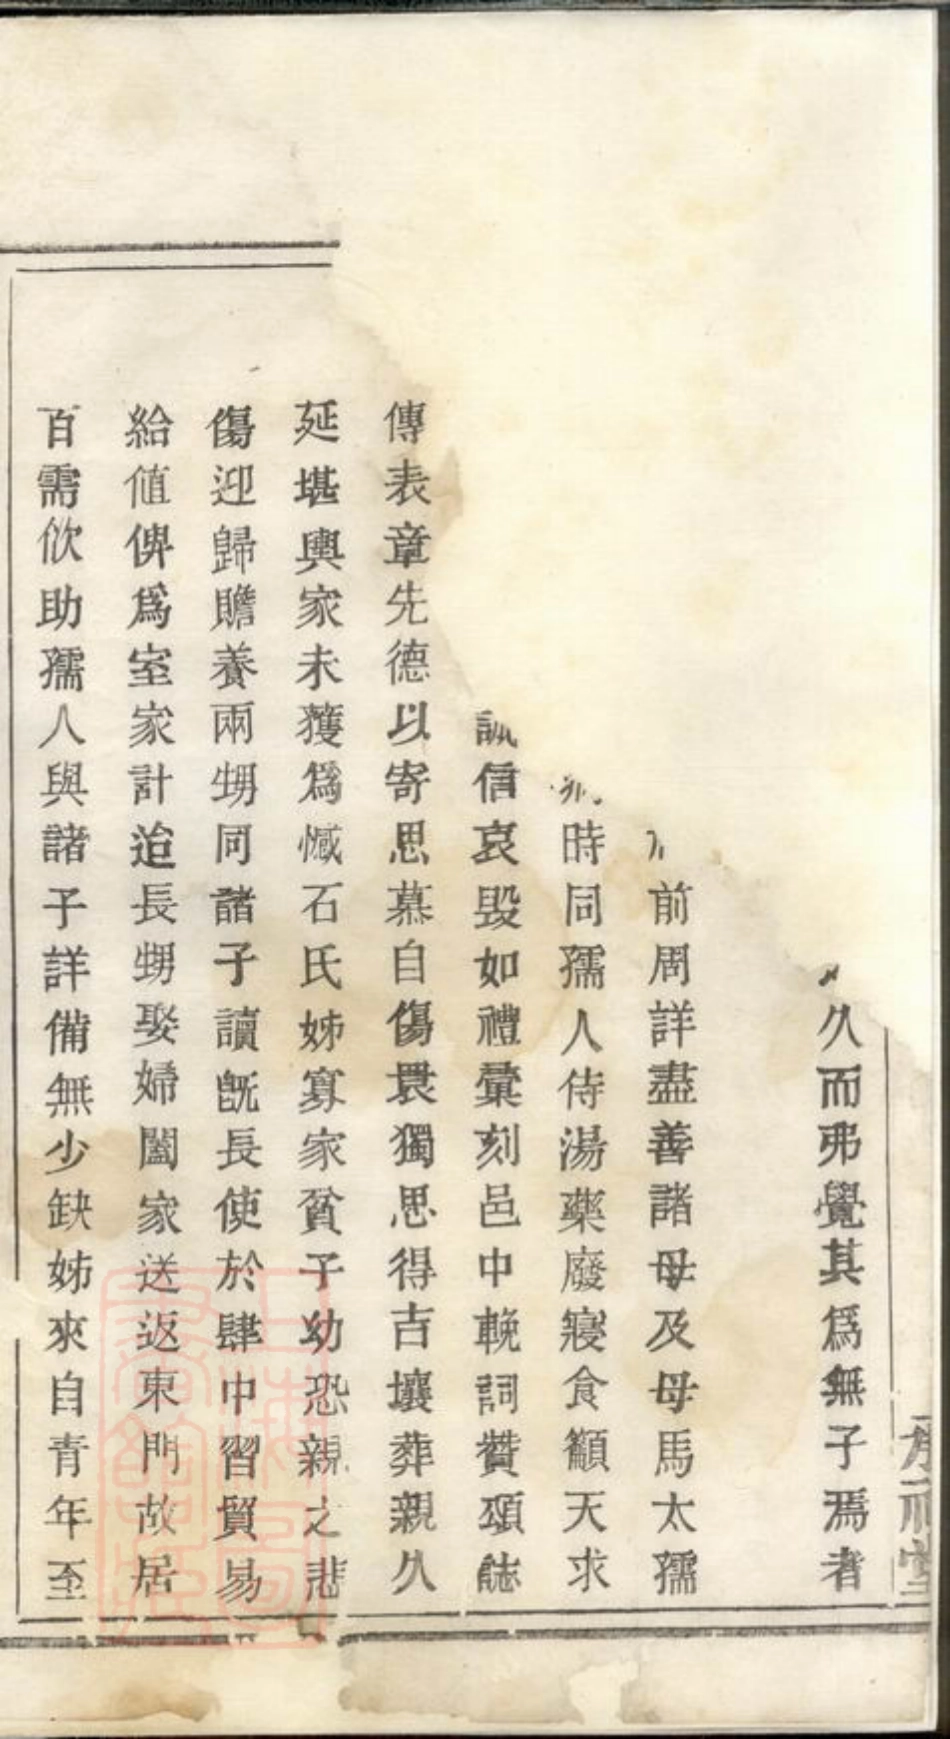 久而弗覺其爲無子焉者
前周詳盡善諸母及母馬太孺
時同孺人侍湯藥廢寢食籲天求
誠信哀毀如禮彙刻邑中輓詞贊頌誌
傳表章先德以寄思慕自傷㷀獨思得吉壤葬親久
延堪輿家未獲爲憾石氏姊寡家貧子幼恐親之悲
傷迎歸贍養兩甥同諸子讀旣長使於肆中習貿易
給値俾爲室家計迨長甥娶婦闔家送返東門故居
百需佽助孺人與諸子詳備無少缺姊來自青年至